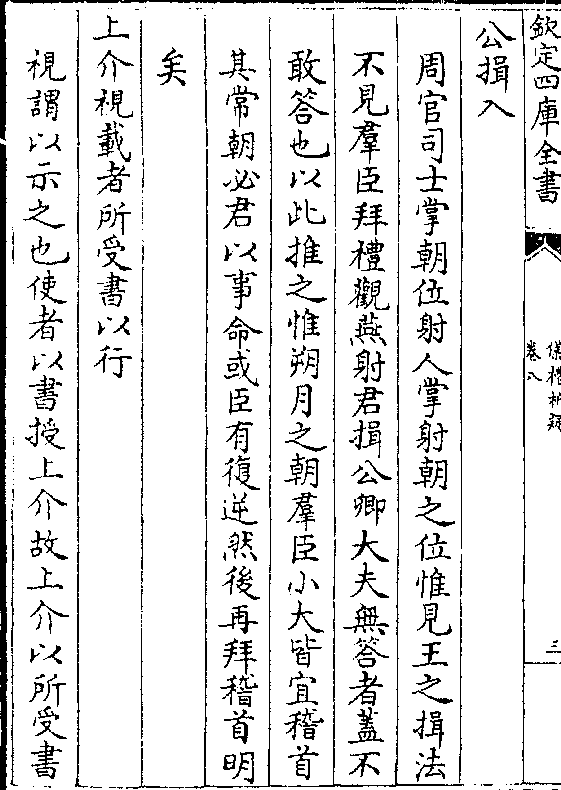 欽定四庫全書
儀禮析疑
卷八
三
公揖入
周官司士掌朝位射人掌射朝之位惟見王之揖法
不見羣臣拜禮觀燕射君揖公卿大夫無答者蓋不
敢答也以此推之惟朔月之朝羣臣小大皆宜稽首
其常朝必君以事命或臣有復逆然後再拜稽首明
矣
上介視載者所受書以行
視謂以示之也使者以書授上介故上介以所受書